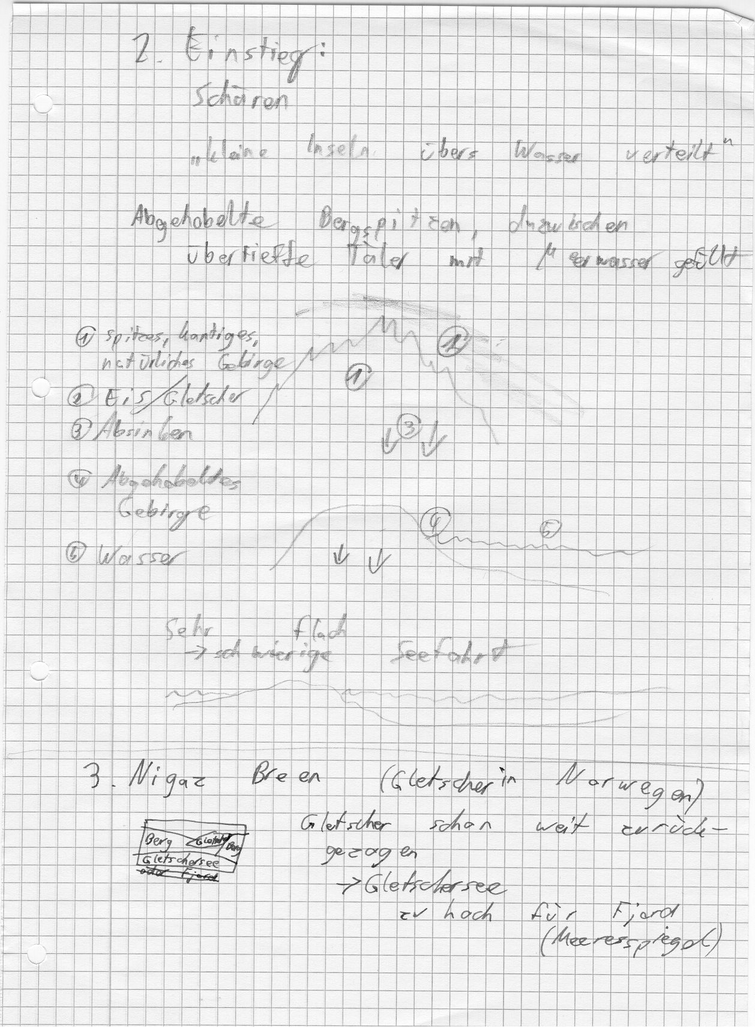 2. Einstieg:
Schären
„kleine Inseln übers Wasser verteilt"
Abgehobelte Bergspitzen, dazwischen
übertiefte Täler mit Meerwasser gefüllt
① spitzes, kantiges,
natürliches Gebirge
② Eis/Gletscher
③ Absinken
④ Abgehobeltes
Gebirge
⑤ Wasser
② 
① 
③ 
④ 
⑤ 
Sehr flach
→ schwierige Seefahrt
3. Nigaz Breen (Gletscher in Norwegen)
Gletscher schon weit zurück-
gezogen
→ Gletschersee
zu hoch für Fjord
(Meeresspiegel)
Berg Gletscher Berg
Gletschersee
oder Fjord